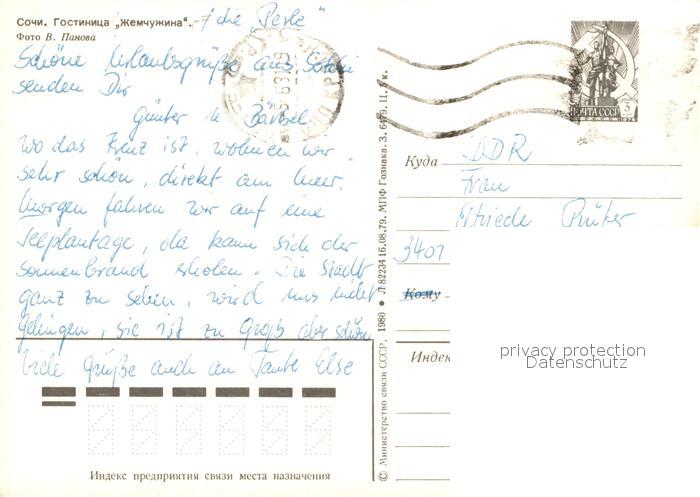 Сочи. Гостиница „Жемчужина". / die "Perle"
Фото В. Панова
Schöne Urlaubsgrüße aus Sotschi
senden Dir
Günter u. Bärbel
wo das Kreuz ist, wohnen wir
sehr schön, direkt am Meer.
Morgen fahren wir auf eine
Teeplantage, da kann sich der
Sonnenbrand erholen. Die Stadt
ganz zu sehen, wird uns nicht
gelingen, sie ist zu groß aber schön
Viele Grüße auch an Tante Else
Индекс предприятия связи места назначения
© Министерство связи СССР, 1980 • Л 82234 16.08.79. МПФ Гознака. З. 6479. Ц. 5 к.
ПОЧТА СССР 3
1976
Куда DDR
Frau
Elfriede Prüter
3401
Кому
Индек
privacy protection
Datenschutz